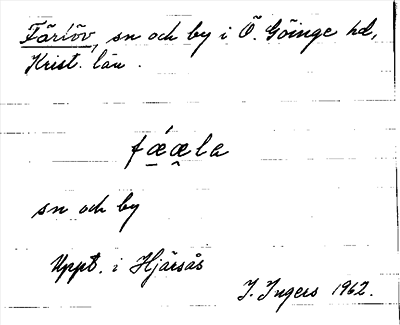 Färlöv, sn och by i Ö. Göinge hd,
Krist. län.
fǽæ̯la
sn och by
Uppt. i Hjärsås
I. Ingers 1962.